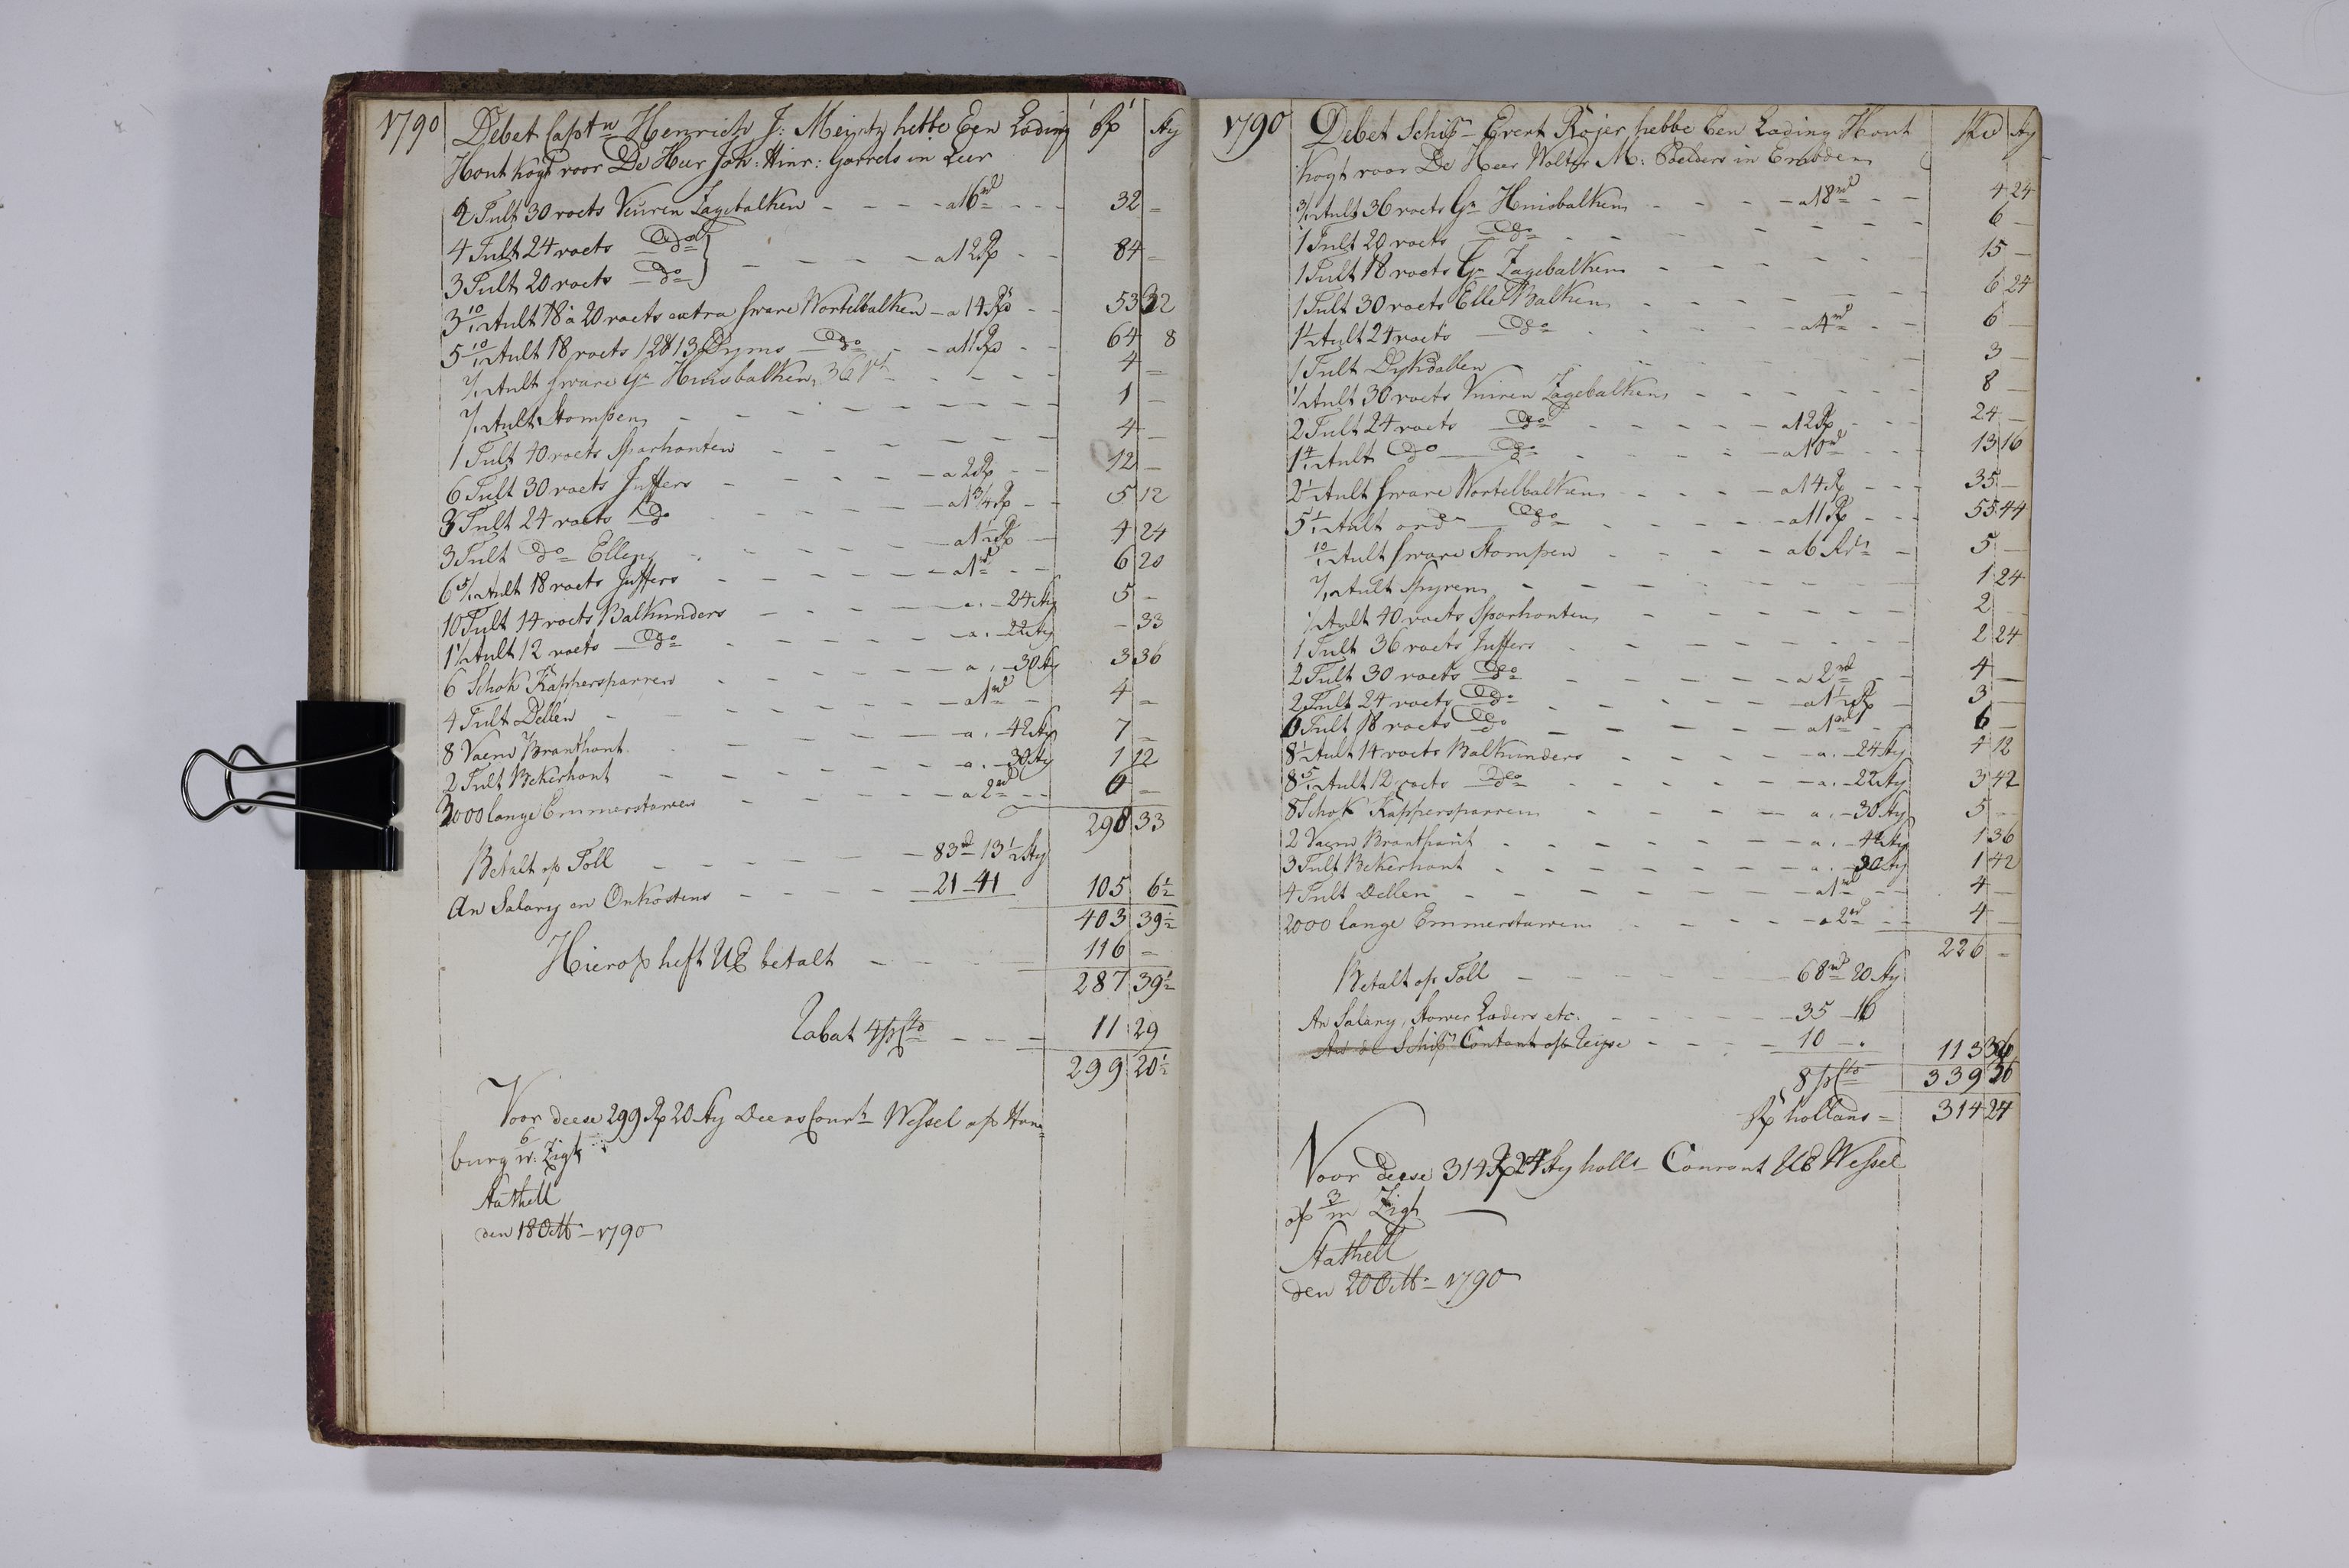 1790 Debet Captn Henrich J: Meintz hebbe Een Lading Rp Sty
Hont kogt voor De Heer Joh: Hinr: Garrels in Leer
2 Tult 30 voets Veuren Zagebalken - - - - a 16 rd - - - 32 -
4 Tult 24 voets Do } - - - - a 12 Rp - - 84 -
3 Tult 20 voets Do
3 10/12 Tult 18 a 20 voets extra sware Wortelbalken - a 14 Rd - - 53 32
5 10/12 Tult 18 voets 12 & 13 Dyms Do - - a 11 Rp - - 64 8
2/12 Tult sware Gr Huisbalken 36 vt - - - - 4 -
2/12 Tult Stompen - - - - - - 1 -
1 Tult 40 voets Sparhouten - - - - - 4 -
6 Tult 30 voets Juffers - - - - - a 2 Rp - - 12 -
3 Tult 24 voets Do - - - - a 1 3/4 Rp - - 5 12
3 Tult Do Ellen - - - - - a 1 1/2 Rp - - 4 24
6 5/12 Tult 18 voets Juffers - - - - a 1 rd - - 6 20
10 Tult 14 voets Balkunders - - - - a . - 24 Sty 5 -
1 1/2 Tult 12 voets Do - - - - - a . - 22 Sty - 33
6 Schok Kappersparren - - - - - a . - 30 Sty 3 36
4 Tult Dellen - - - - - - a 1 rd - 4 -
8 Vaem Branthont - - - - - a . - 42 Sty 7 -
2 Tult Bekerhont - - - - - a . - 30 Sty 1 12
3000 lange Emmerstaven - - - - - a 2 rd - - 6 -
298 33
Betalt op Toll - - - - - 83 rd 13 1/2 Sty
An Salary en Onkostens - - - - 21 - 41 105 6 1/2
403 39 1/2
Hierop heft UE betalt - - - 116 -
287 39 1/2
Rabat 4 pCto - - - 11 29
299 20 1/2
Voor deese 299 Rp 20 Sty Deens Court Wessel op Ham=
burg 6/w: Zigt
Stathell
den 18 Octb - 1790
1790 Debet Schipr Evert Rojer hebbe Een Lading Hont Rd Sty
kogt voor De Heer Wolter M: Poelders in Embden
3/12 Tult 36 voets Gr Huisbalken - - - - a 18 rd - - 4 24
1 Tult 20 voets Do - - - - - - - 6 -
1 Tult 18 voets Gr Zagebalken - - - - - 15 -
1 Tult 30 voets Elle Balken - - - - - - 6 24
1 1/2 Tult 24 voets Do - - - - a 4 rd - - 6 -
1 Tult Dykdallen - - - - - - 3 -
1/2 Tult 30 voets Vuiren Zagebalken - - - - - 8 -
2 Tult 24 voets Do - - - - - a 12 Rp - - - 24 -
1 4/12 Tult Do Do - - - - - a 10 rd - - - 13 16
2 1/2 Tult sware Wortelbalken - - - - a 14 Rp - - - 35 -
5 1/12 Tult ordr Do - - - - - a 11 Rp - - - 55 44
10/12 Tult sware Stompen - - - - a 6 Rds - 5 -
2/12 Tult Spyren - - - - - - 1 24
1/2 Tult 40 voets Sparhouten - - - - - - 2 -
1 Tult 36 voets Juffers - - - - - - 2 24
2 Tult 30 voets Do - - - - - a 2 rd - - 4 -
2 Tult 24 voets Do - - - - - a 1 1/2 Rp - 3 -
6 Tult 18 voets Do - - - - - a 1 rd - - 6 -
8 1/2 Tult 14 voets Balkunders - - - - a . - 24 Sty 4 12
8 5/12 Tult 12 voets Do - - - - - a . - 22 Sty 3 42
8 Schok Kappersparren - - - - - a . - 30 Sty 5 -
2 Vaem Branthont - - - - - a . - 42 Sty 1 36
3 Tult Bekerhont - - - - - a . - 30 Sty 1 42
4 Tult Dellen - - - - - - a 1 rd - - 4 -
2000 lange Emmerstaven - - - - a 2 rd - - 4 -
226 -
Betalt op Toll - - - - - 68 rd 20 Sty
An Salary, Stower Laders etc. - - - - - 35 - 16
An de Schipr Contant op Reise - - - - 10 - . 113 36
8 pCto 339 36
Rp hollans = 314 24
Voor deese 314 Rp 24 Sty holls Courant UE Wessel
op 3/m Zigt
Stathell
den 20 Octb - 1790